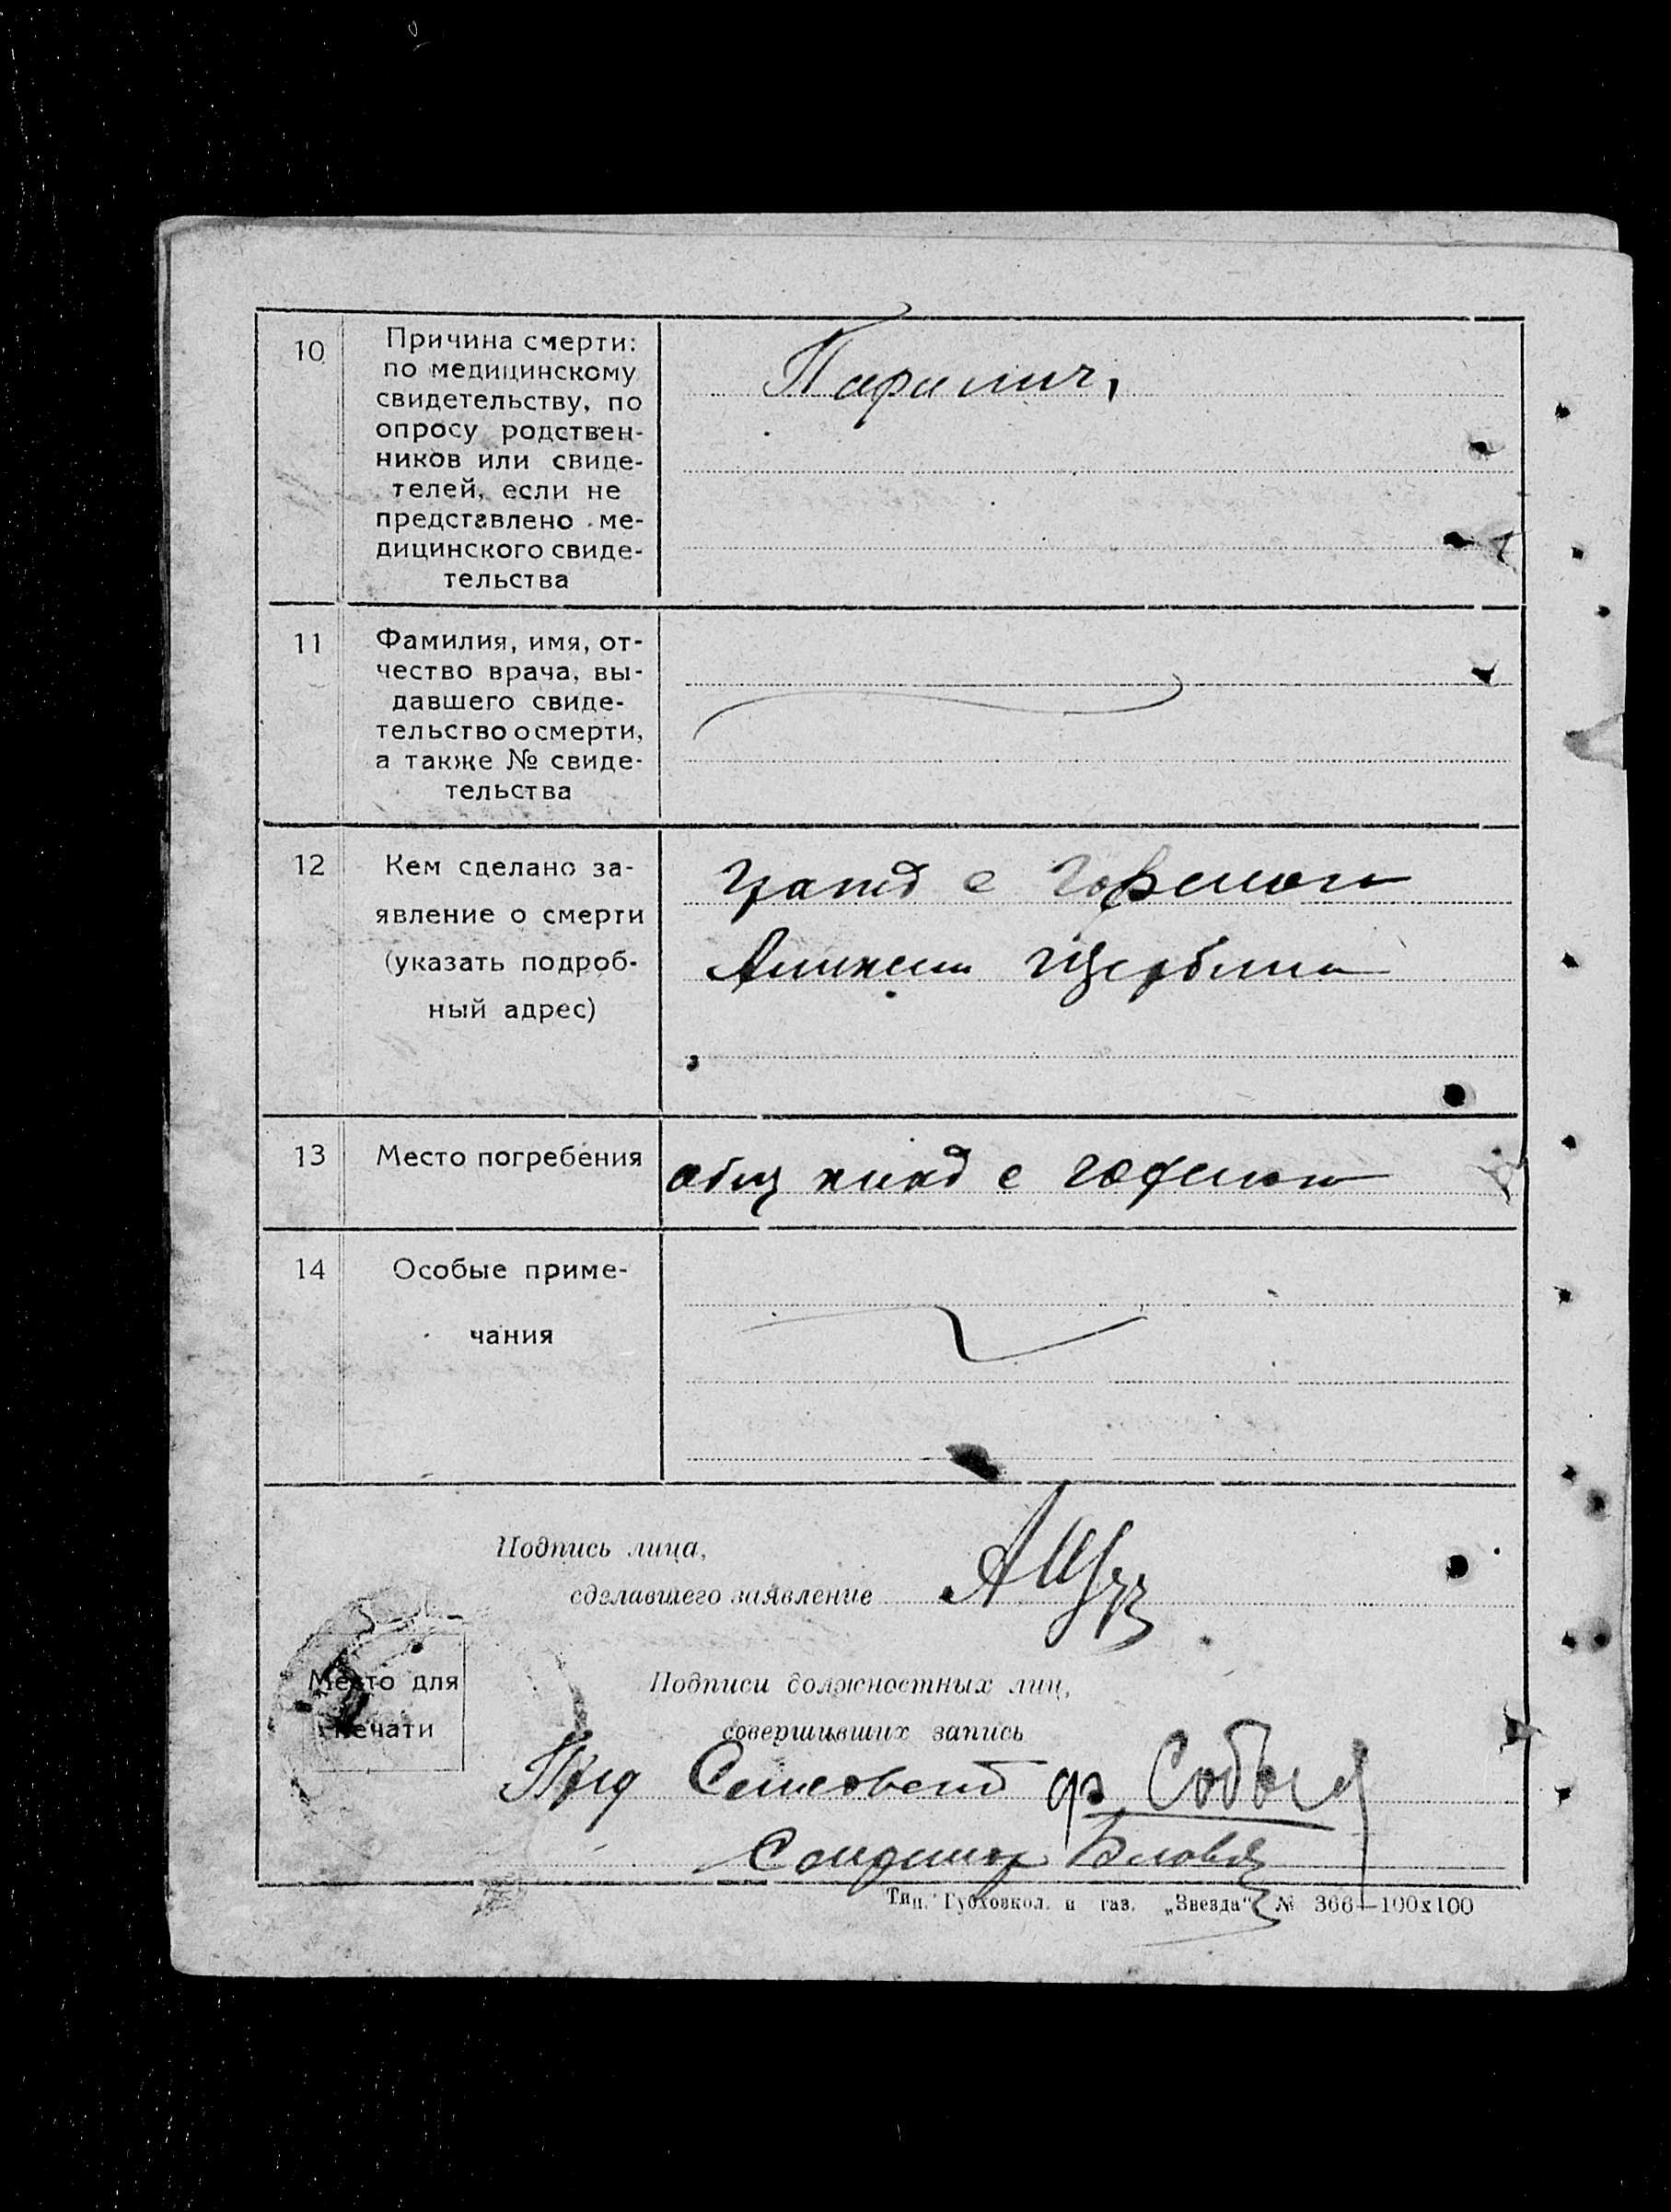 10
Причина смерти:
по медицинскому
свидетельству, по
опросу родствен-
ников или свиде-
телей, если не
представлено ме-
дицинского свиде-
тельства
Паралич,
11
Фамилия, имя, от-
чество врача, вы-
давшего свиде-
тельство о смерти,
а также № свиде-
тельства
12
Кем сделано за-
явление о смерти
(указать подроб-
ный адрес)
с
Щербина
13
Место погребения
общ клад с
14
Особые приме-
чания
Подпись лица,
сделавшего заявление
Место для
печати
Подписи должностных лиц,
совершивших запись
Пред Сельсовета
Тип. Губховкол. и газ. „Звезда“ № 366—100х100